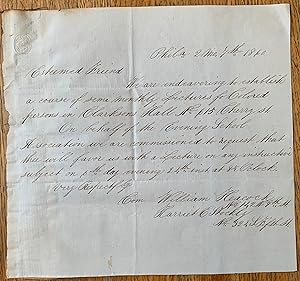 Phila 2 Mo. 7th 1860
Esteemed Friend
We are endeavoring to establish
a course of semi monthly Lectures for Colored
persons in Clarkson Hall No. 115 Cherry St.
On behalf of the Evening School
Association we are commissioned to request that
thee will favor us with a Lecture on any instructive
subject on 6th day evening inst at 8 O'clock.
Very Respectfy
Com William Heacock
9th St
Harriet C
No 524 St